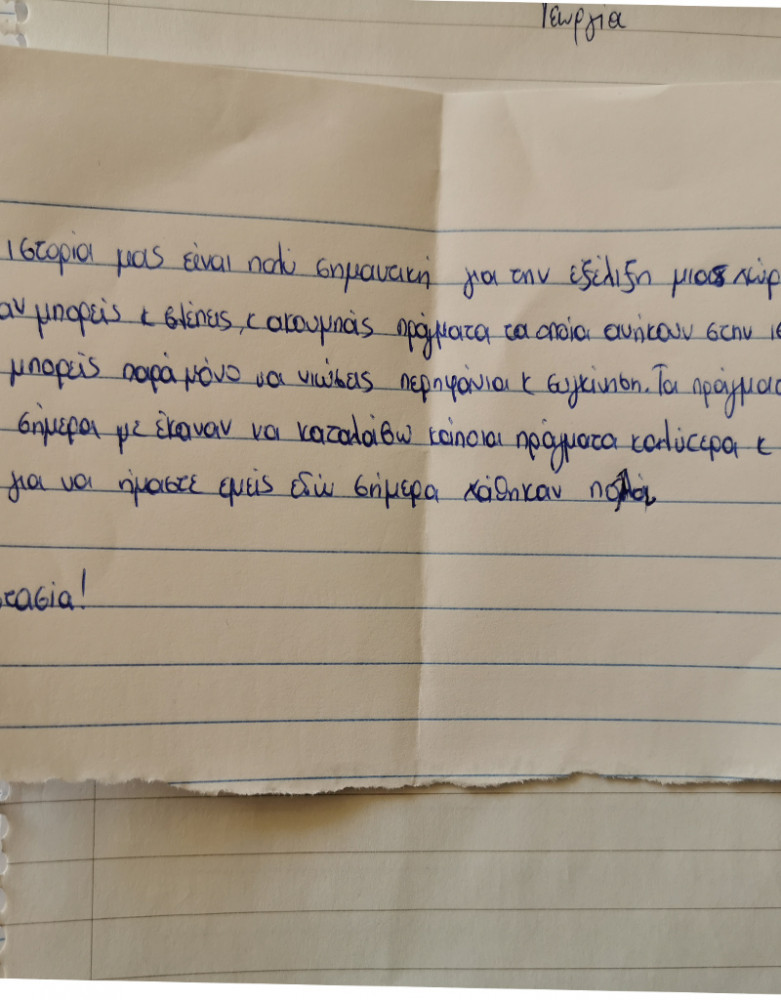 Γεωργία
ιστορία μας είναι πολύ σημαντική για την εξέλιξη μιας χώρ
αν μπορείς κ βλέπεις, κ ακουμπάς πράγματα τα οποία ανήκουν στην ισ
μπορείς παρά μόνο να νιώσεις περηφάνια κ συγκίνηση. Τα πράγματα
σήμερα με έκαναν να καταλάβω κάποια πράγματα καλύτερα κ
για να ήμαστε εμείς εδώ σήμερα χάθηκαν πολλοί
τασία!